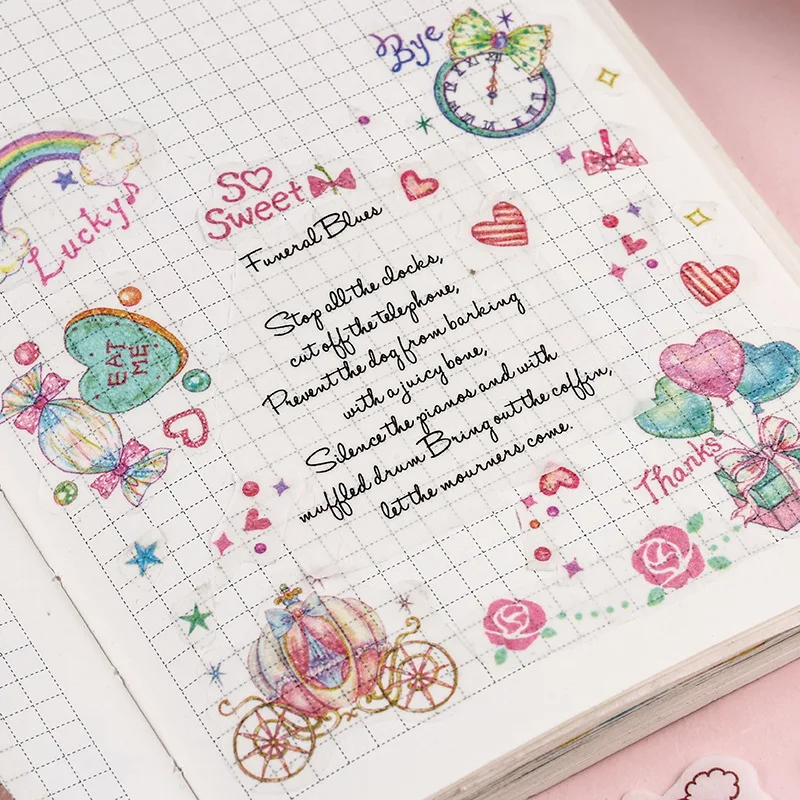 Bye
Lucky
So
Sweet
Funeral Blues
Stop all the clocks,
cut off the telephone,
Prevent the dog from barking
with a juicy bone,
Silence the pianos and with
muffled drum Bring out the coffin,
let the mourners come.
EAT
ME
Thanks